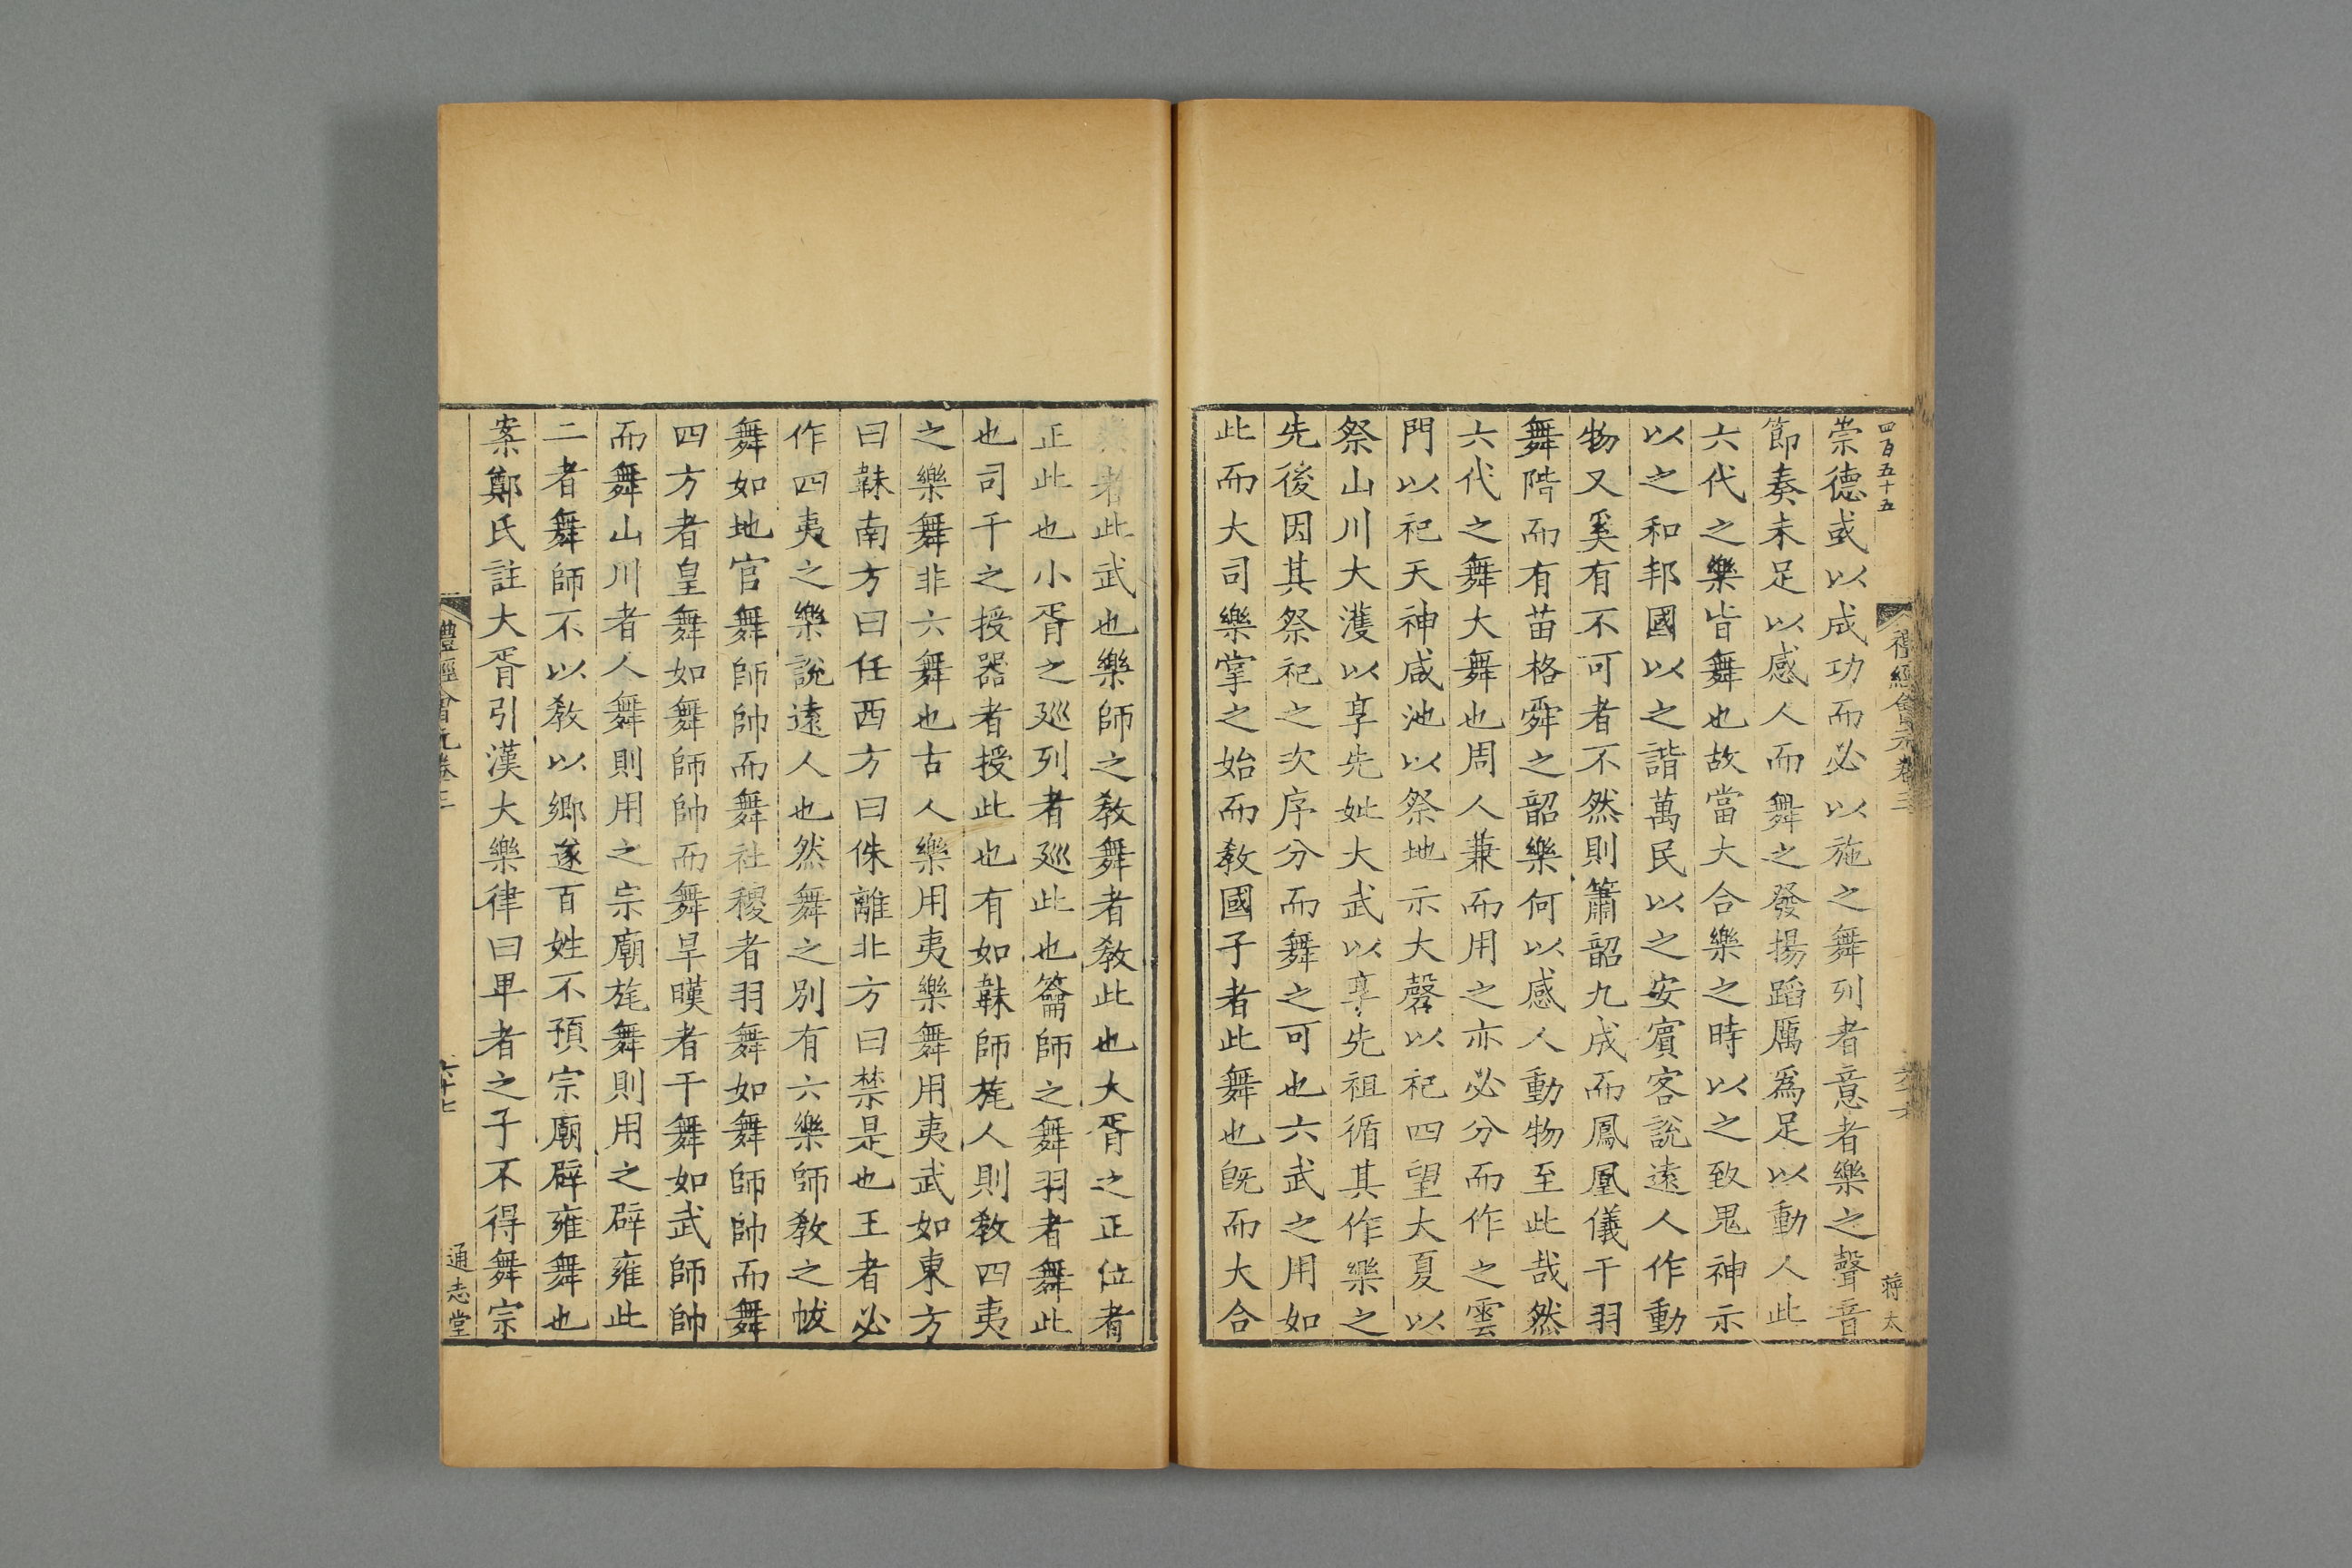 四百五十五
禮經會元卷三
蔣太
崇德或以成功而必以施之舞列者意者樂之聲音
節奏未足以感人而舞之發揚蹈厲爲足以動人此
六代之樂皆舞也故當大合樂之時以之致鬼神示
以之和邦國以之諧萬民以之安賓客說遠人作動
物又奚有不可者不然則簫韶九成而鳳凰儀干羽
舞階而有苗格舜之韶樂何以感人動物至此哉然
六代之舞大舞也周人兼而用之亦必分而作之雲
門以祀天神咸池以祭地示大磬以祀四望大夏以
祭山川大濩以享先妣大武以享先祖循其作樂之
先後因其祭祀之次序分而舞之可也六武之用如
此而大司樂掌之始而敎國子者此舞也旣而大合
樂者此武也樂師之敎舞者敎此也大胥之正位者
正此也小胥之巡列者巡此也籥師之舞羽者舞此
也司干之授器者授此也有如韎師旄人則敎四夷
之樂舞非六舞也古人樂用夷樂舞用夷武如東方
曰韎南方曰任西方曰侏離北方曰禁是也王者必
作四夷之樂說遠人也然舞之別有六樂師敎之帗
舞如地官舞師帥而舞社稷者羽舞如舞師帥而舞
四方者皇舞如舞師帥而舞旱暵者干舞如武師帥
而舞山川者人舞則用之宗廟旄舞則用之辟雍此
二者舞師不以敎以鄉遂百姓不預宗廟辟雍舞也
案鄭氏註大胥引漢大樂律曰卑者之子不得舞宗
禮經會元卷三
六十七
通志堂